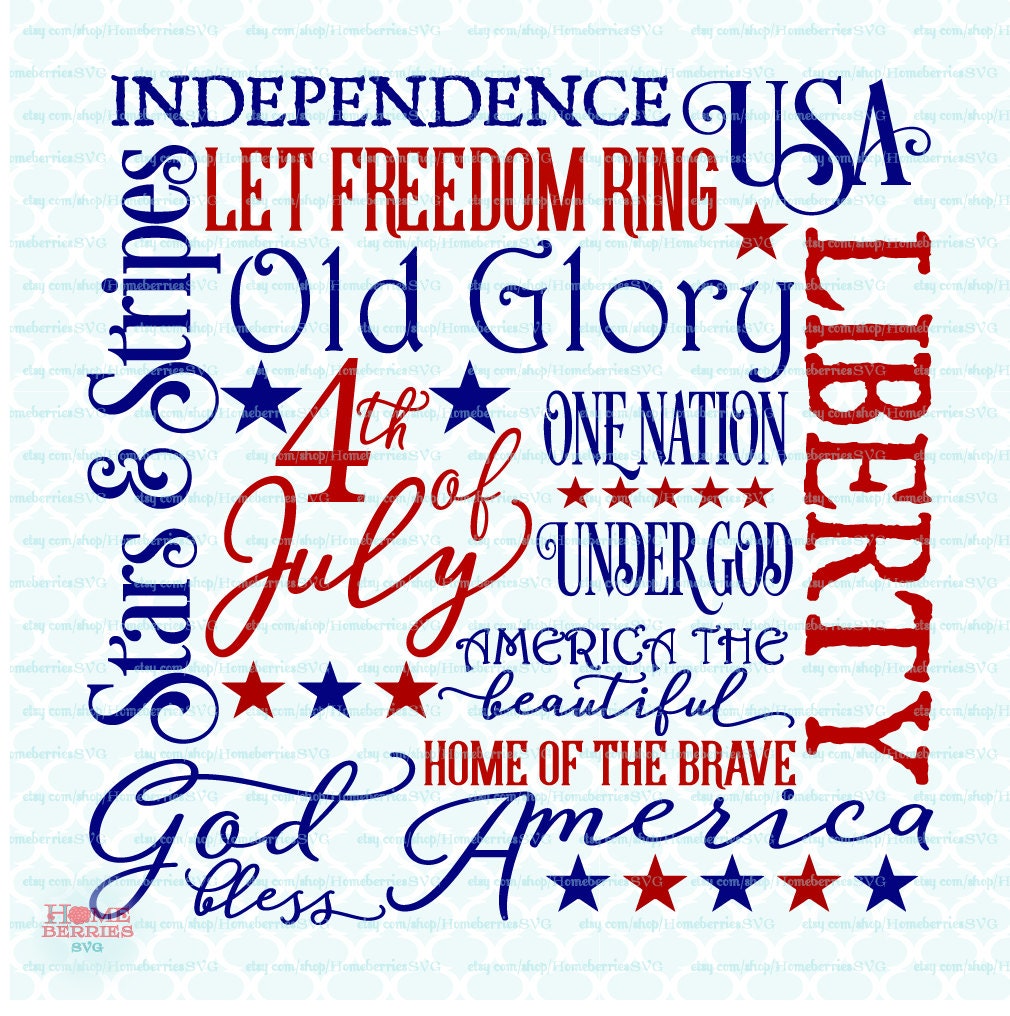 INDEPENDENCE
USA
LET FREEDOM RING
Stars & Stripes
Old Glory
LIBERTY
4th
of
July
ONE NATION
UNDER GOD
AMERICA THE
beautiful
HOME OF THE BRAVE
God
bless
America
HOME
BERRIES
SVG
etsy.com/shop/HomeberriesSVG